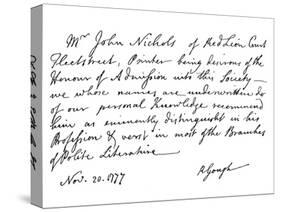 Mr John Nichols of Red Lion Court
Fleetstreet, Printer being desirous of the
Honour of Admission into this Society—
we whose names are underwritten do
of our personal Knowledge recommend
him as eminently distinguisht in his
Profession & verst in most of the Branches
of Polite Literature
Nov. 20. 1777 RGough